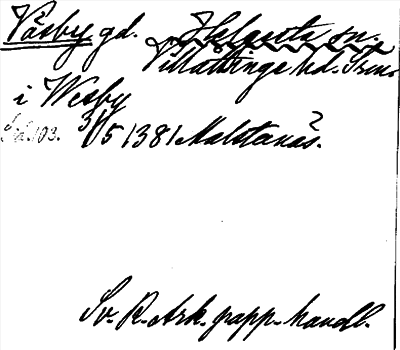 Väsby gd. Helgesta sn.
Villåttinge hd. Srm.
i Wesby
Sd. 103. 31/5 1381 Malstanäs?
Sv. R. Ark. papp. handl.